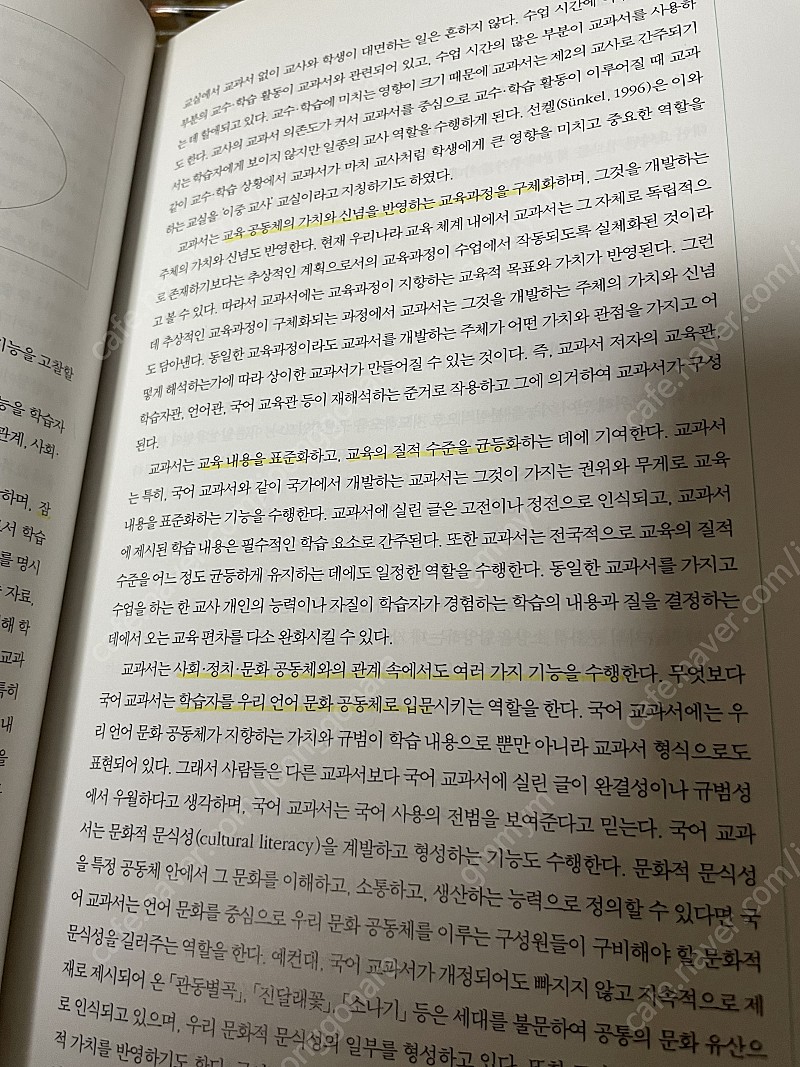 기능을 고찰할
능을 학습자
관계, 사회·
하며, 잠
로서 학습
를 명시
자료,
해 학
교과
특히
내
을
교실에서 교과서 없이 교사와 학생이 대면하는 일은 흔하지 않다. 수업 시간에
부분의 교수·학습 활동이 교과서와 관련되어 있고, 수업 시간의 많은 부분이 교과서를 사용하
는 데 할애되고 있다. 교수·학습에 미치는 영향이 크기 때문에 교과서는 제2의 교사로 간주되기
도 한다. 교사의 교과서 의존도가 커서 교과서를 중심으로 교수·학습 활동이 이루어질 때 교과
서는 학습자에게 보이지 않지만 일종의 교사 역할을 수행하게 된다. 선켈(Sünkel, 1996)은 이와
같이 교수·학습 상황에서 교과서가 마치 교사처럼 학생에게 큰 영향을 미치고 중요한 역할을
하는 교실을 '이중 교사' 교실이라고 지칭하기도 하였다.
교과서는 교육 공동체의 가치와 신념을 반영하는 교육과정을 구체화하며, 그것을 개발하는
주체의 가치와 신념도 반영한다. 현재 우리나라 교육 체계 내에서 교과서는 그 자체로 독립적으
로 존재하기보다는 추상적인 계획으로서의 교육과정이 수업에서 작동되도록 실체화된 것이라
고 볼 수 있다. 따라서 교과서에는 교육과정이 지향하는 교육적 목표와 가치가 반영된다. 그런
데 추상적인 교육과정이 구체화되는 과정에서 교과서는 그것을 개발하는 주체의 가치와 신념
도 담아낸다. 동일한 교육과정이라도 교과서를 개발하는 주체가 어떤 가치와 관점을 가지고 어
떻게 해석하는가에 따라 상이한 교과서가 만들어질 수 있는 것이다. 즉, 교과서 저자의 교육관,
학습자관, 언어관, 국어 교육관 등이 재해석하는 준거로 작용하고 그에 의거하여 교과서가 구성
된다.
교과서는 교육 내용을 표준화하고, 교육의 질적 수준을 균등화하는 데에 기여한다. 교과서
는 특히, 국어 교과서와 같이 국가에서 개발하는 교과서는 그것이 가지는 권위와 무게로 교육
내용을 표준화하는 기능을 수행한다. 교과서에 실린 글은 고전이나 정전으로 인식되고, 교과서
에 제시된 학습 내용은 필수적인 학습 요소로 간주된다. 또한 교과서는 전국적으로 교육의 질적
수준을 어느 정도 균등하게 유지하는 데에도 일정한 역할을 수행한다. 동일한 교과서를 가지고
수업을 하는 한 교사 개인의 능력이나 자질이 학습자가 경험하는 학습의 내용과 질을 결정하는
데에서 오는 교육 편차를 다소 완화시킬 수 있다.
교과서는 사회·정치·문화 공동체와의 관계 속에서도 여러 가지 기능을 수행한다. 무엇보다
국어 교과서는 학습자를 우리 언어 문화 공동체로 입문시키는 역할을 한다. 국어 교과서에는 우
리 언어 문화 공동체가 지향하는 가치와 규범이 학습 내용으로 뿐만 아니라 교과서 형식으로도
표현되어 있다. 그래서 사람들은 다른 교과서보다 국어 교과서에 실린 글이 완결성이나 규범성
에서 우월하다고 생각하며, 국어 교과서는 국어 사용의 전범을 보여준다고 믿는다. 국어 교과
서는 문화적 문식성(cultural literacy)을 계발하고 형성하는 기능도 수행한다. 문화적 문식성
을 특정 공동체 안에서 그 문화를 이해하고, 소통하고, 생산하는 능력으로 정의할 수 있다면 국
어 교과서는 언어 문화를 중심으로 우리 문화 공동체를 이루는 구성원들이 구비해야 할 문화적
문식성을 길러주는 역할을 한다. 예컨대, 국어 교과서가 개정되어도 빠지지 않고 지속적으로 제
재로 제시되어 온 「관동별곡」, 「진달래꽃」, 「소나기」 등은 세대를 불문하여 공통의 문화 유산으
로 인식되고 있으며, 우리 문화적 문식성의 일부를 형성하고 있다. 또한
적 가치를 반영하기도 한다.